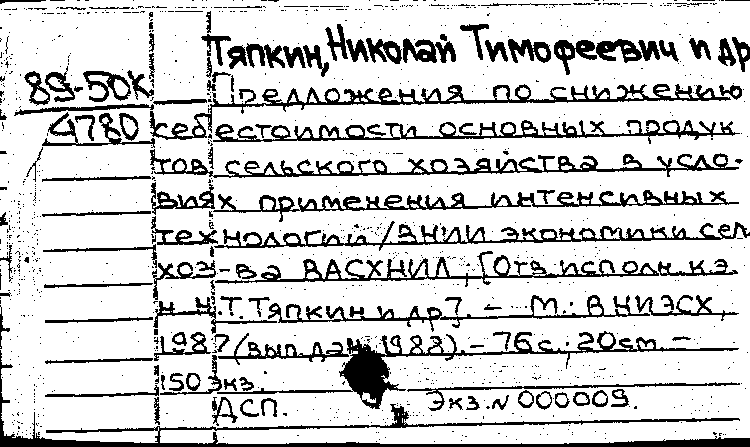 Тяпкин, Николай Тимофеевич и др
89-50К Предложения по снижению
4780 себестоимости основных продук
тов сельского хозяйства в усло-
виях применения интенсивных
технологий / ВНИИ экономики сел.
хоз-ва ВАСХНИЛ; [Отв. исполн. к.э.
н. Н.Т. Тяпкин и др]. - М.: ВНИЭСХ,
1987 (вып. дан. 1988). - 76 с.; 20 cm. -
150 экз.
ДСП. Экз. N 000009.